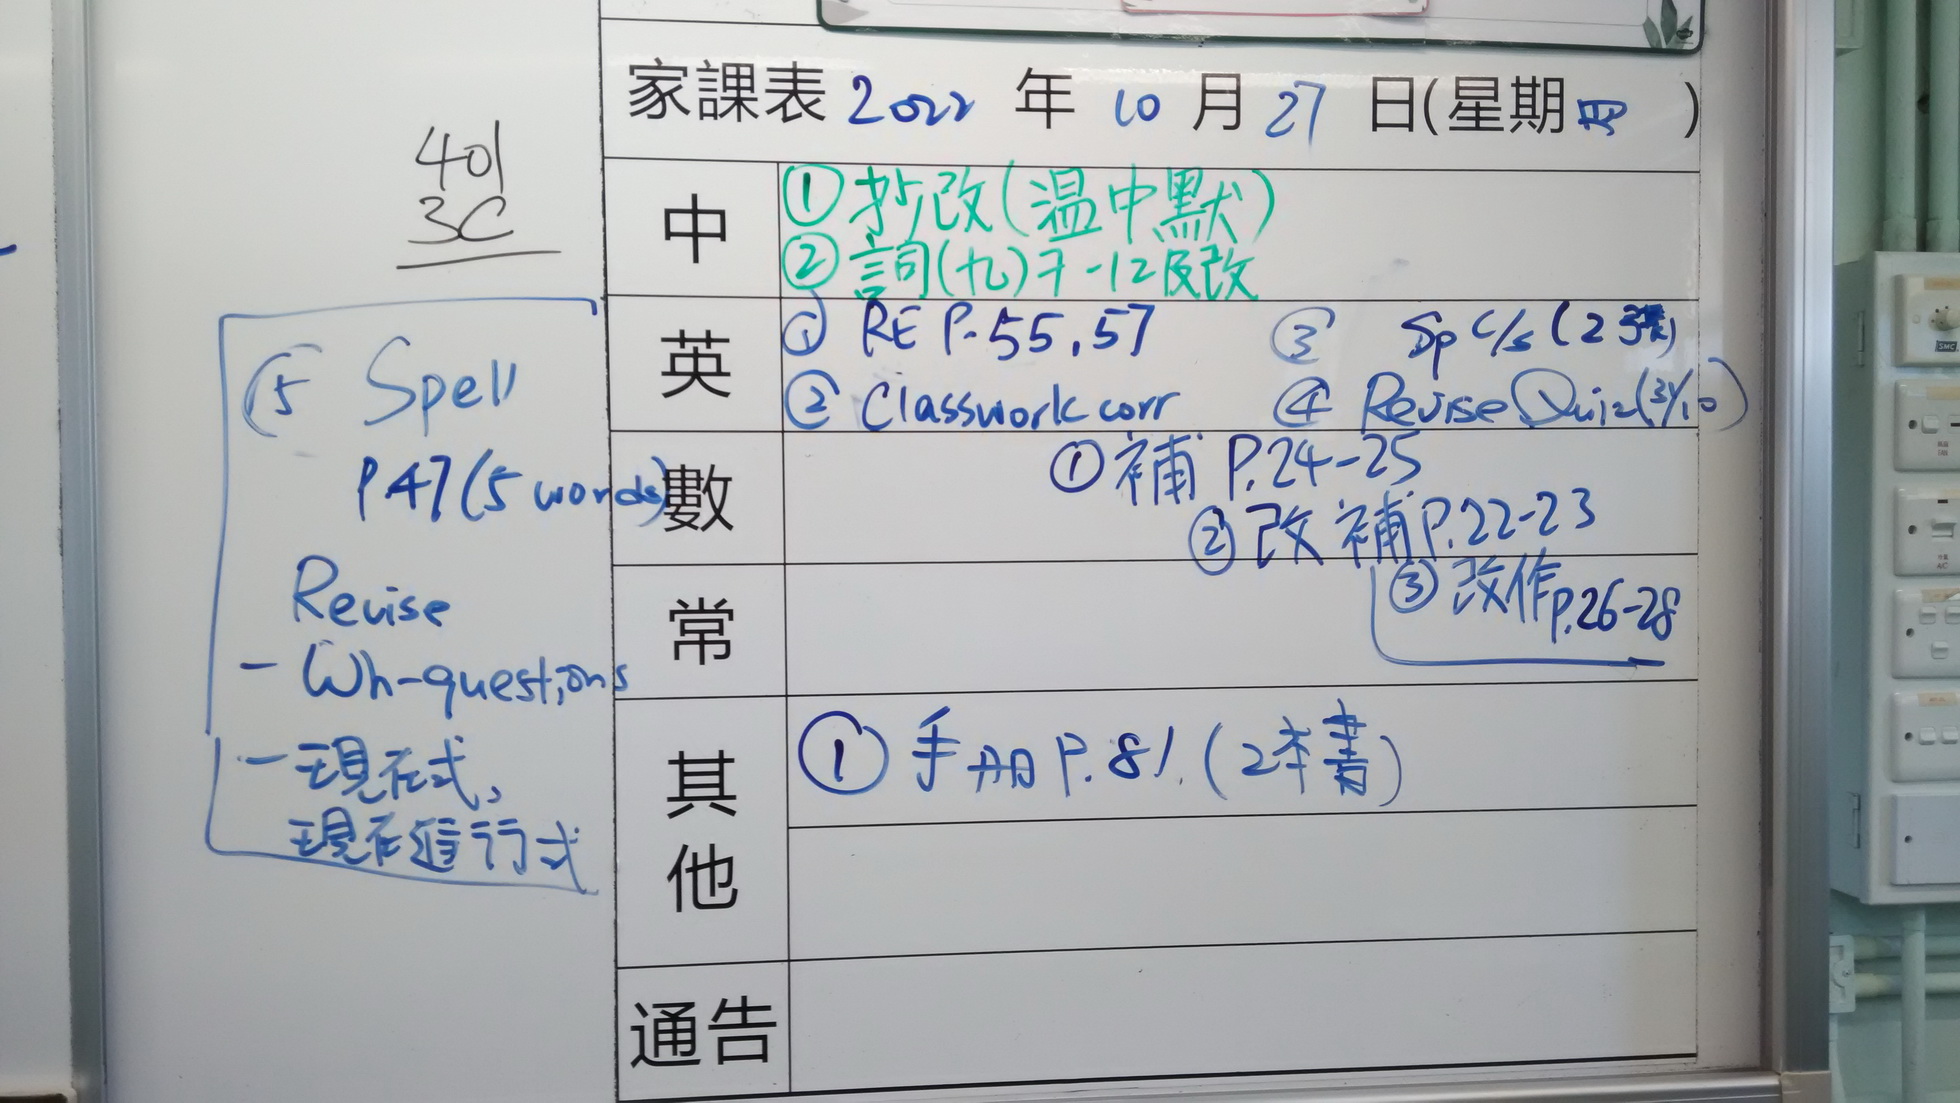 家課表 2022 年 10 月 27 日(星期四)
401
3C
中
① 抄改(溫中默)
② 詞(九)7-12及改
英
① RE P.55,57
③ Sp c/s (2張)
② Classwork corr
④ Revise Quiz(31/10)
⑤ Spell
P47(5 words)
Revise
- Wh-questions
- 現在式、
現在進行式
數
① 補 P.24-25
② 改 補 P.22-23
③ 改作 P.26-28
常
其他
① 手册 P.81.(2本書)
通告